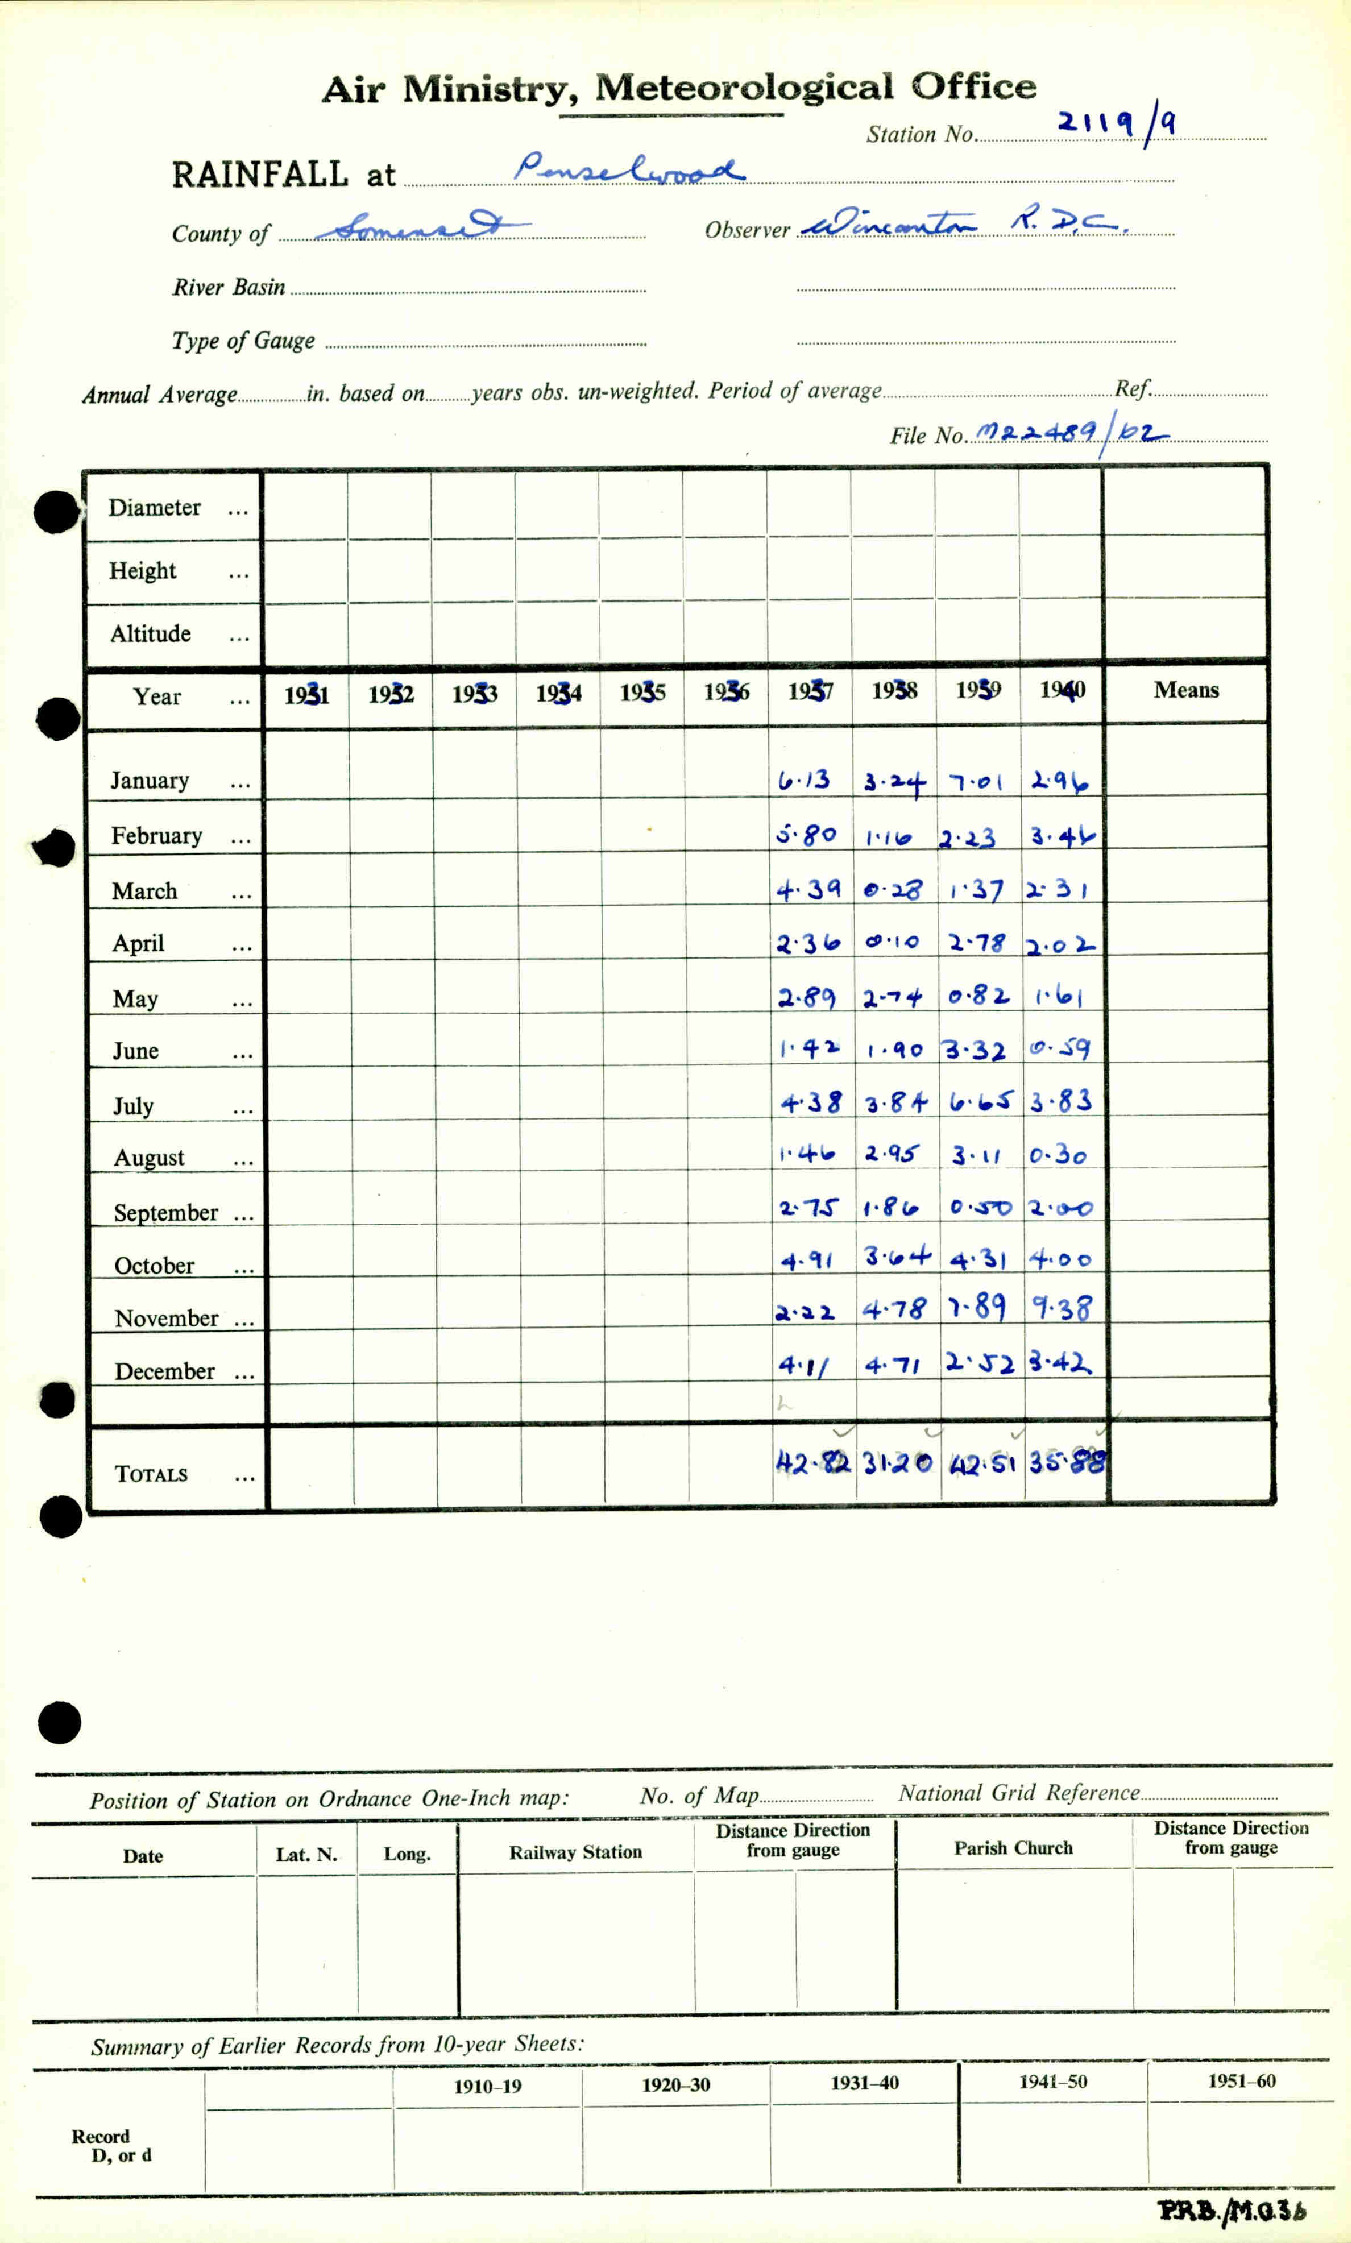 Air Ministry, Meteorological Office
Station No. 2119/9
RAINFALL at Penselwood
County of Somerset Observer Wincanton R.D.C.
River Basin
Type of Gauge
Annual Average in. based on years obs. un-weighted. Period of average Ref.
File No. M22489/62
Diameter ...
Height ...
Altitude ...
Year ... 1931 1932 1933 1934 1935 1936 1937 1938 1939 1940 Means
January ... 6.13 3.24 7.01 2.96
February ... 5.80 1.16 2.23 3.46
March ... 4.39 0.28 1.37 2.31
April ... 2.36 0.10 2.78 2.02
May ... 2.89 2.74 0.82 1.61
June ... 1.42 1.90 3.32 0.59
July ... 4.38 3.84 6.65 3.83
August ... 1.46 2.95 3.11 0.30
September ... 2.75 1.86 0.50 2.00
October ... 4.91 3.64 4.31 4.00
November ... 2.22 4.78 7.89 9.38
December ... 4.11 4.71 2.52 3.42
TOTALS ... 42.82 31.20 42.51 35.88
Position of Station on Ordnance One-Inch map: No. of Map National Grid Reference
Date Lat. N. Long. Railway Station Distance Direction from gauge Parish Church Distance Direction from gauge
Summary of Earlier Records from 10-year Sheets:
1910-19 1920-30 1931-40 1941-50 1951-60
Record
D, or d
P.R.B./M.O.36